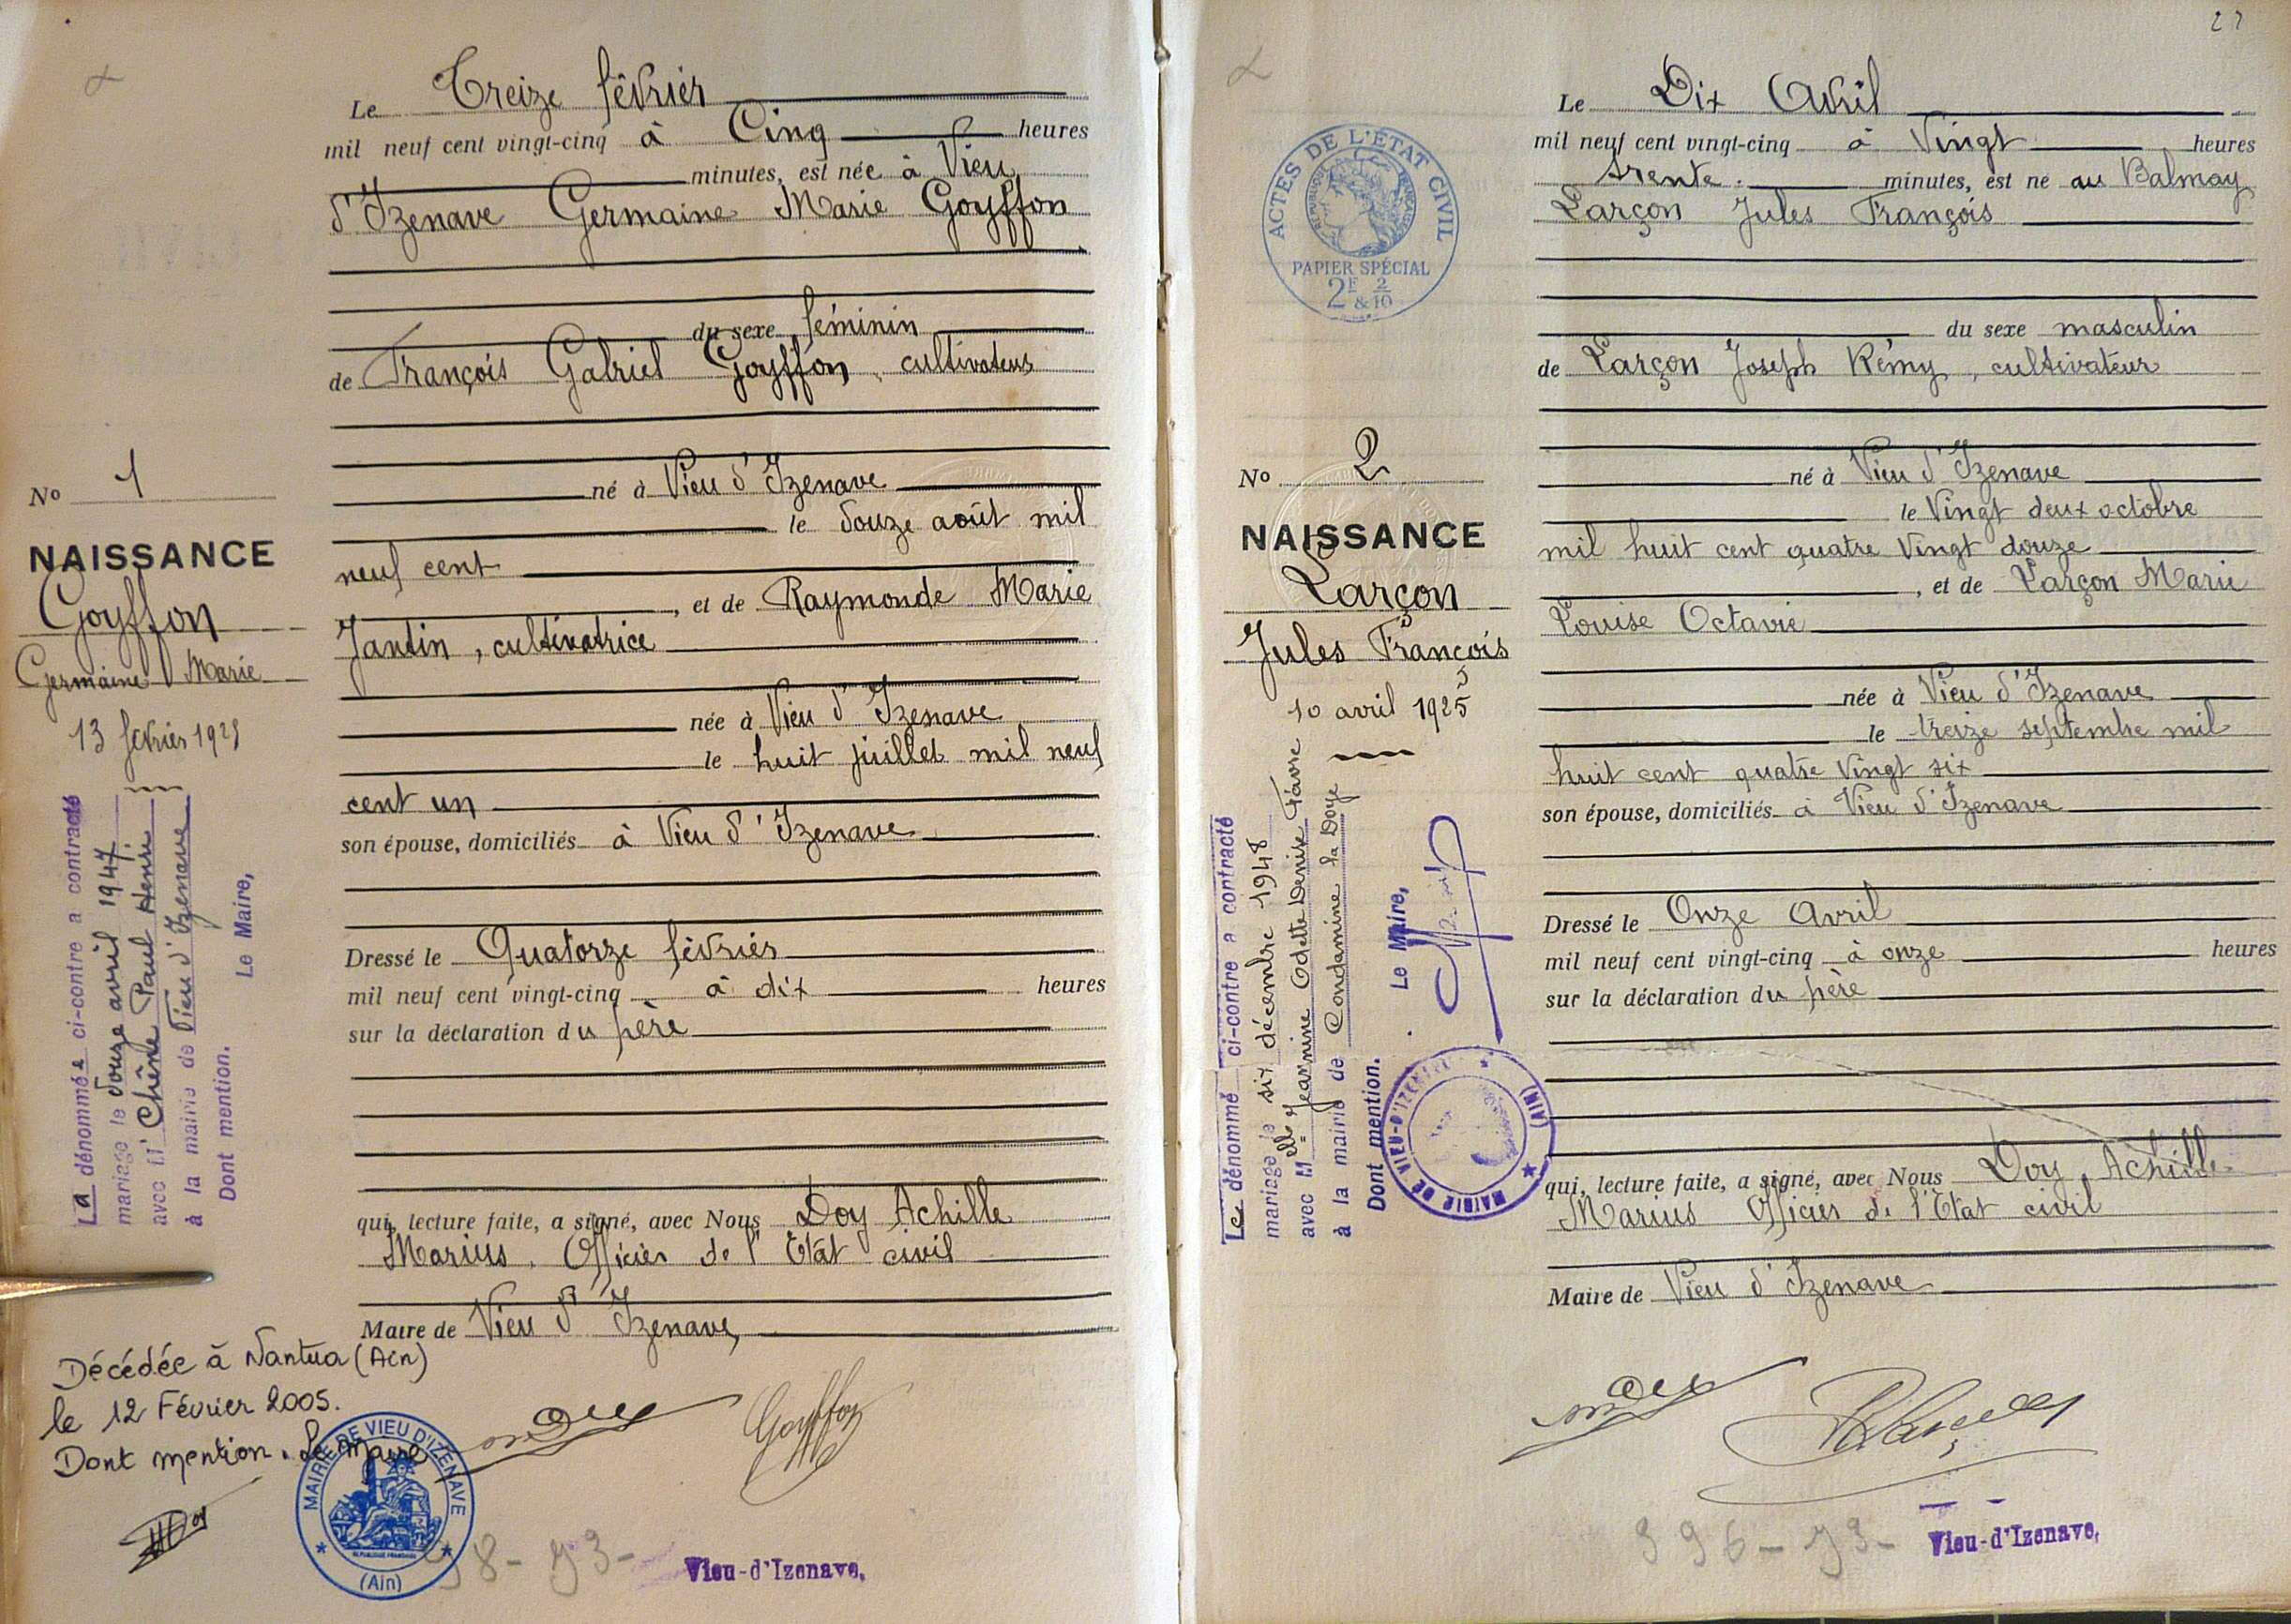 Le Treize février
mil neuf cent vingt-cinq à Cinq heures
minutes, est née à Vieu
d'Izenave Germaine Marie Goyffon
du sexe féminin
de François Gabriel Goyffon, cultivateur
né à Vieu d'Izenave
le douze août mil
neuf cent
, et de Raymonde Marie
Jantin, cultivatrice
née à Vieu d'Izenave
le huit juillet mil neuf
cent un
son épouse, domiciliés à Vieu d'Izenave
Dressé le Quatorze février
mil neuf cent vingt-cinq à dix heures
sur la déclaration du père
qui, lecture faite, a signé, avec Nous Doy Achille
Marius, Officier de l'Etat civil
Maire de Vieu d'Izenave,
Goyffon
Vieu-d'Izenave,
No 1
NAISSANCE
Goyffon
Germaine Marie
13 février 1925
La dénommée ci-contre a contracté
mariage le douze avril 1947
avec M Chêne Paul Henri
à la mairie de Vieu d'Izenave
Dont mention. Le Maire,
Décédée à Nantua (Ain)
le 12 Février 2005.
Dont mention. Le Maire
MAIRIE DE VIEU D'IZENAVE
REPUBLIQUE FRANCAISE
(Ain)
Le Dix Avril
mil neuf cent vingt-cinq à Vingt heures
trente minutes, est né au Balmay
Larçon Jules François
du sexe masculin
de Larçon Joseph Rémy, cultivateur
né à Vieu d'Izenave
le Vingt deux octobre
mil huit cent quatre Vingt douze
, et de Larçon Marie
Louise Octavie
née à Vieu d'Izenave
le treize septembre mil
huit cent quatre Vingt six
son épouse, domiciliés à Vieu d'Izenave
Dressé le Onze Avril
mil neuf cent vingt-cinq à onze heures
sur la déclaration du père
qui, lecture faite, a signé, avec Nous Doy Achille
Marius Officier de l'Etat civil
Maire de Vieu d'Izenave
Vieu-d'Izenave,
ACTES DE L'ÉTAT CIVIL
RÉPUBLIQUE FRANÇAISE
PAPIER SPÉCIAL
2F & 2/10
No 2
NAISSANCE
Larçon
Jules François
10 avril 1925
Le dénommé ci-contre a contracté
mariage le six décembre 1948
avec Melle Jeannine Odette Denise Favre
à la mairie de Condamine la Doye
Dont mention. Le Maire,
MAIRIE DE VIEU-D'IZENAVE
(AIN)